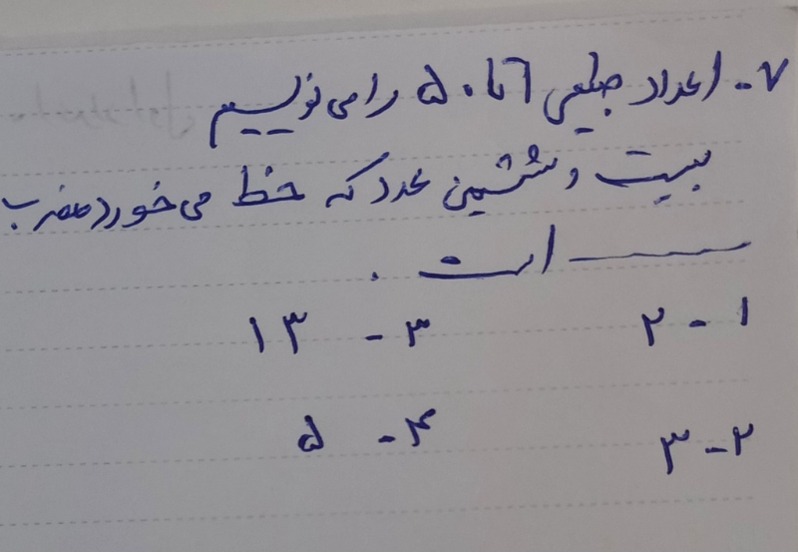 ۷- اعداد طبیعی ۱ تا ۵۰ را می نویسیم
بیست و ششمین عدد که خط می خورد مضرب
ــــــــ است .
۱- ۲ ۳- ۱۳
۲- ۳ ۴- ۵